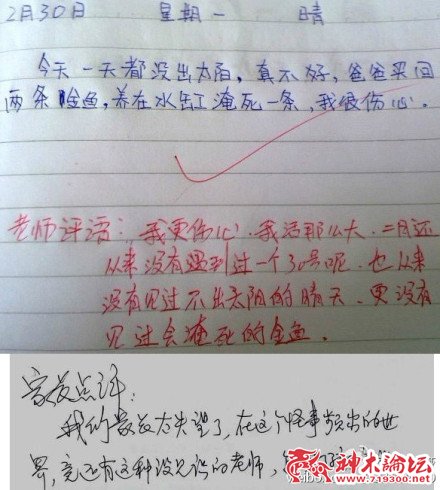 2月30日 星期一 晴
今天一天都没出太阳,真不好,爸爸买回
两条金鱼,养在水缸淹死一条,我很伤心.
老师评语:我更伤心.我活那么大,二月还
从来没有遇到过一个30号呢.也从来
没有见过不出太阳的晴天.更没有
见过会淹死的金鱼.
家长点评:
我的教友太失望了,在这个怪事频出的世
界,竟还有这种没见识的老师,
神木论坛